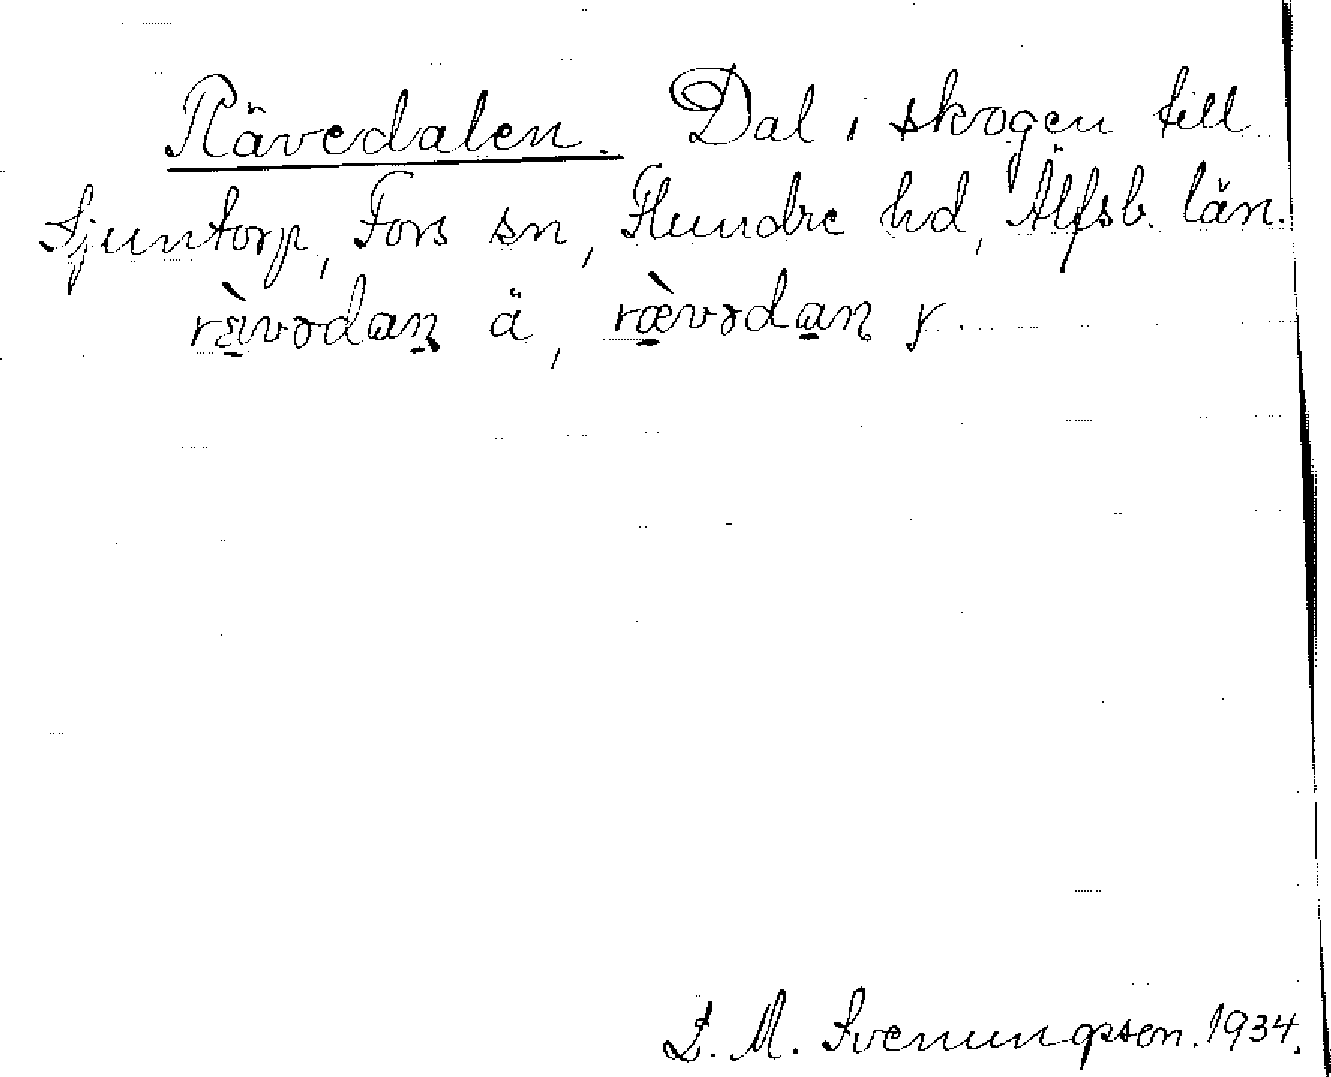 Rävedalen. Dal i skogen till
Sjuntorp, Fors sn, Flundre hd, Älfsb. län.
rä̀vədan ä, ræ̀vədan y.
D. M. Svenungsson. 1934.